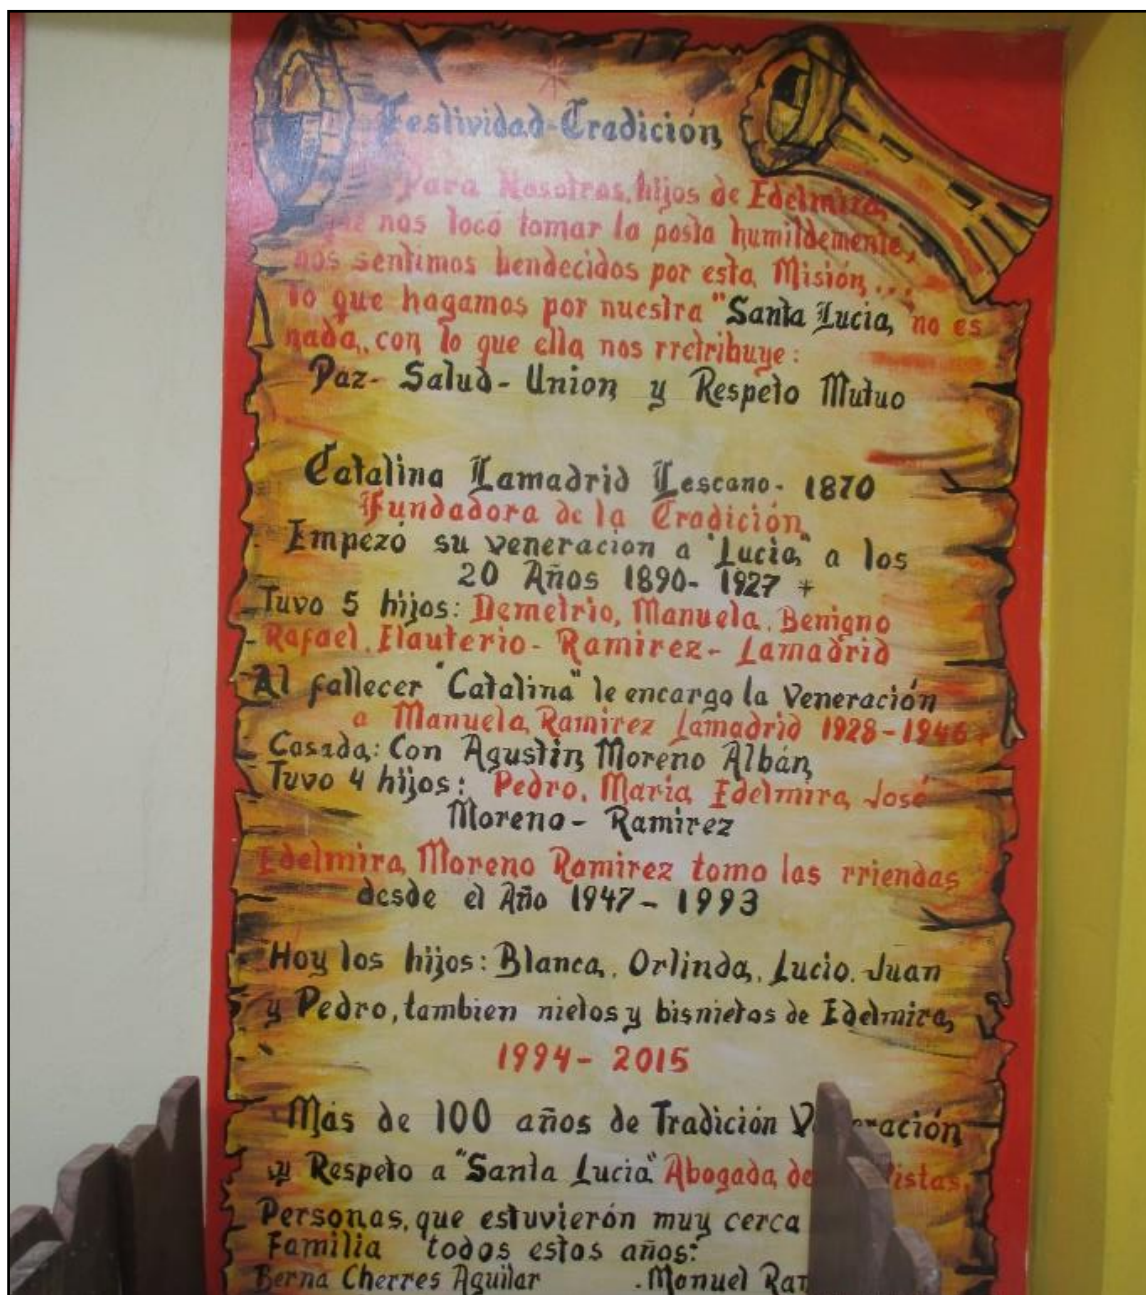 Festividad-Tradición
Para Nosotros, hijos de Edelmira,
que nos tocó tomar la posta humildemente,
nos sentimos bendecidos por esta Misión...
lo que hagamos por nuestra "Santa Lucia, no es
nada, con lo que ella nos rretribuye:
Paz- Salud- Union y Respeto Mutuo
Catalina Lamadrid Lescano- 1870
Fundadora de la Tradición
Empezó su veneracion a "Lucia" a los
20 Años 1890- 1927 +
Tuvo 5 hijos: Demetrio, Manuela, Benigno
Rafael, Elauterio- Ramirez- Lamadrid
Al fallecer "Catalina" le encargo la Veneración
a Manuela Ramirez Lamadrid 1928-1946+
Casada: Con Agustin Moreno Albán
Tuvo 4 hijos: Pedro, Maria, Edelmira, José
Moreno- Ramirez
Edelmira Moreno Ramirez tomo las rriendas
desde el Año 1947- 1993
Hoy los hijos: Blanca, Orlinda, Lucio, Juan
y Pedro, tambien nietos y bisnietos de Edelmira
1994- 2015
Más de 100 años de Tradición
y Respeto a "Santa Lucia" Abogada de
Personas, que estuvierón muy cerca
Familia todos estos años:
Berna Cherres Aguilar .Manuel